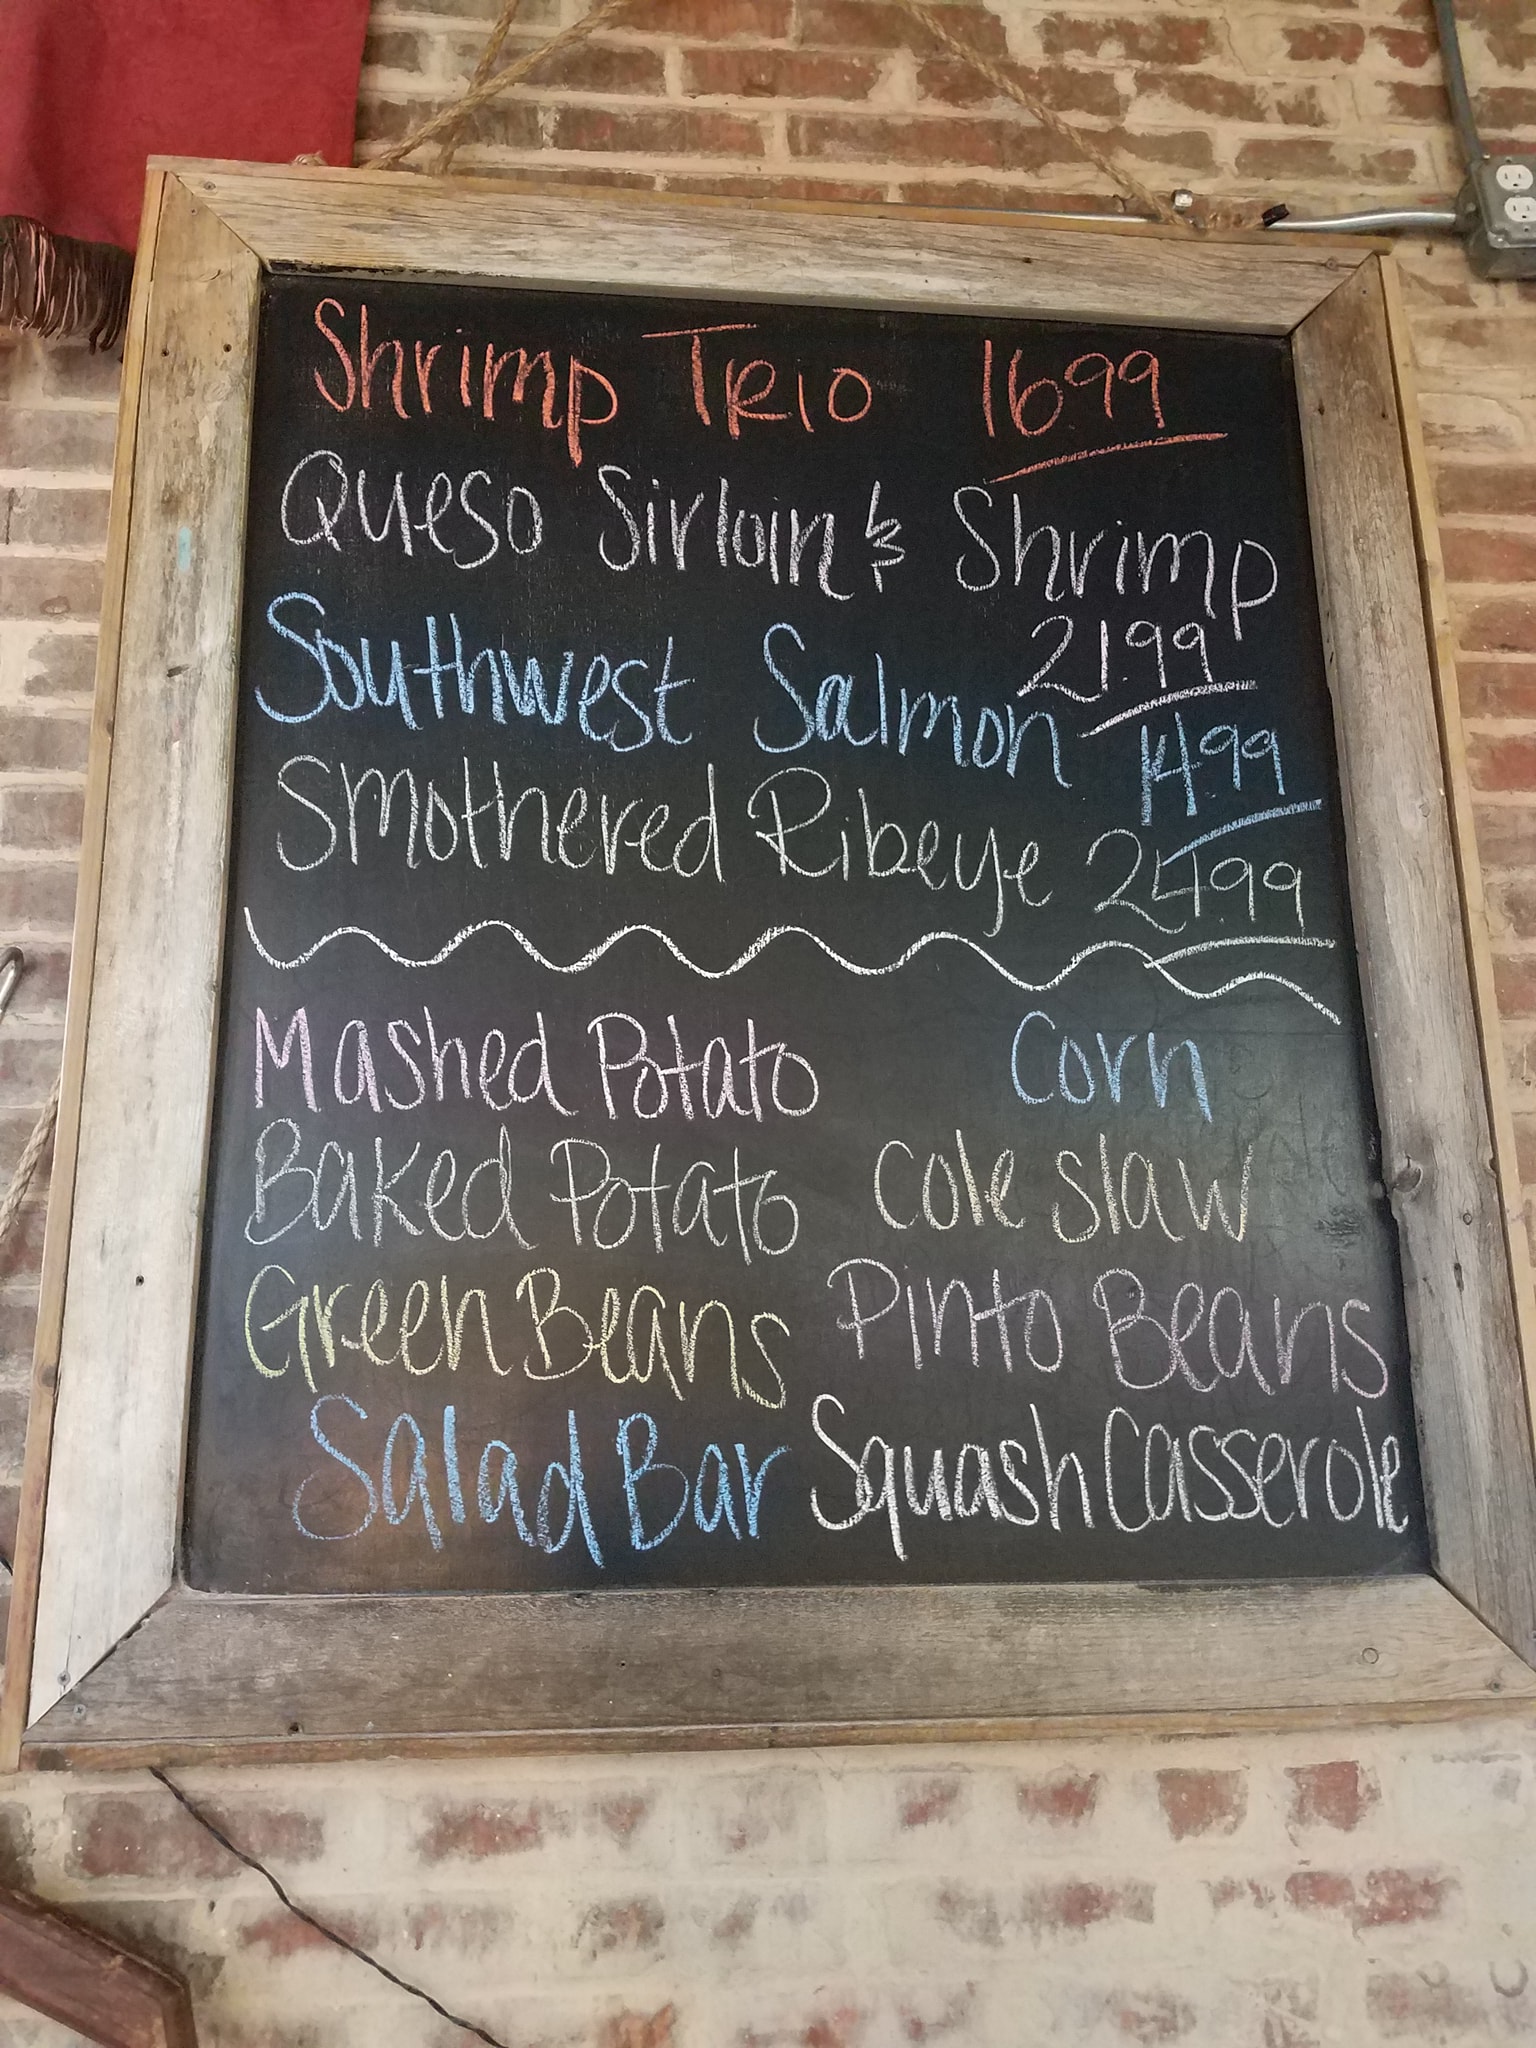 Shrimp TRIO 1699
Queso Sirloin & Shrimp
21.99
Southwest Salmon 14.99
Smothered Ribeye 24.99
Mashed Potato Corn
Baked Potato Cole slaw
Green Beans Pinto Beans
Salad Bar Squash Casserole